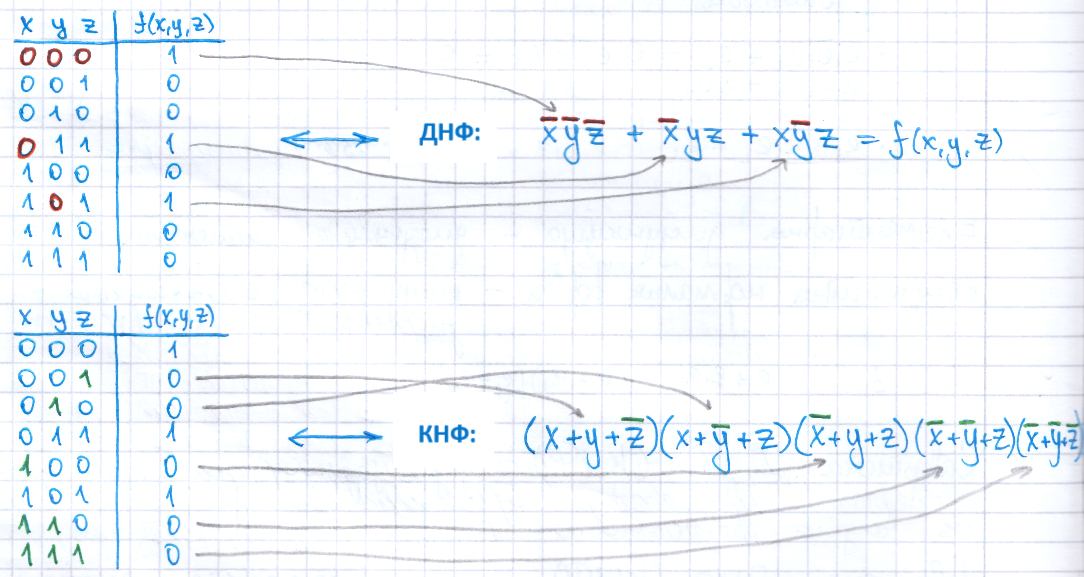 x y z f(x,y,z)
0 0 0 1
0 0 1 0
0 1 0 0
0 1 1 1
1 0 0 0
1 0 1 1
1 1 0 0
1 1 1 0
ДНФ: x̅y̅z̅ + x̅yz + xy̅z = f(x,y,z)
x y z f(x,y,z)
0 0 0 1
0 0 1 0
0 1 0 0
0 1 1 1
1 0 0 0
1 0 1 1
1 1 0 0
1 1 1 0
КНФ: (x+y+z̅)(x+y̅+z)(x̅+y+z)(x̅+y̅+z)(x̅+y̅+z̅)